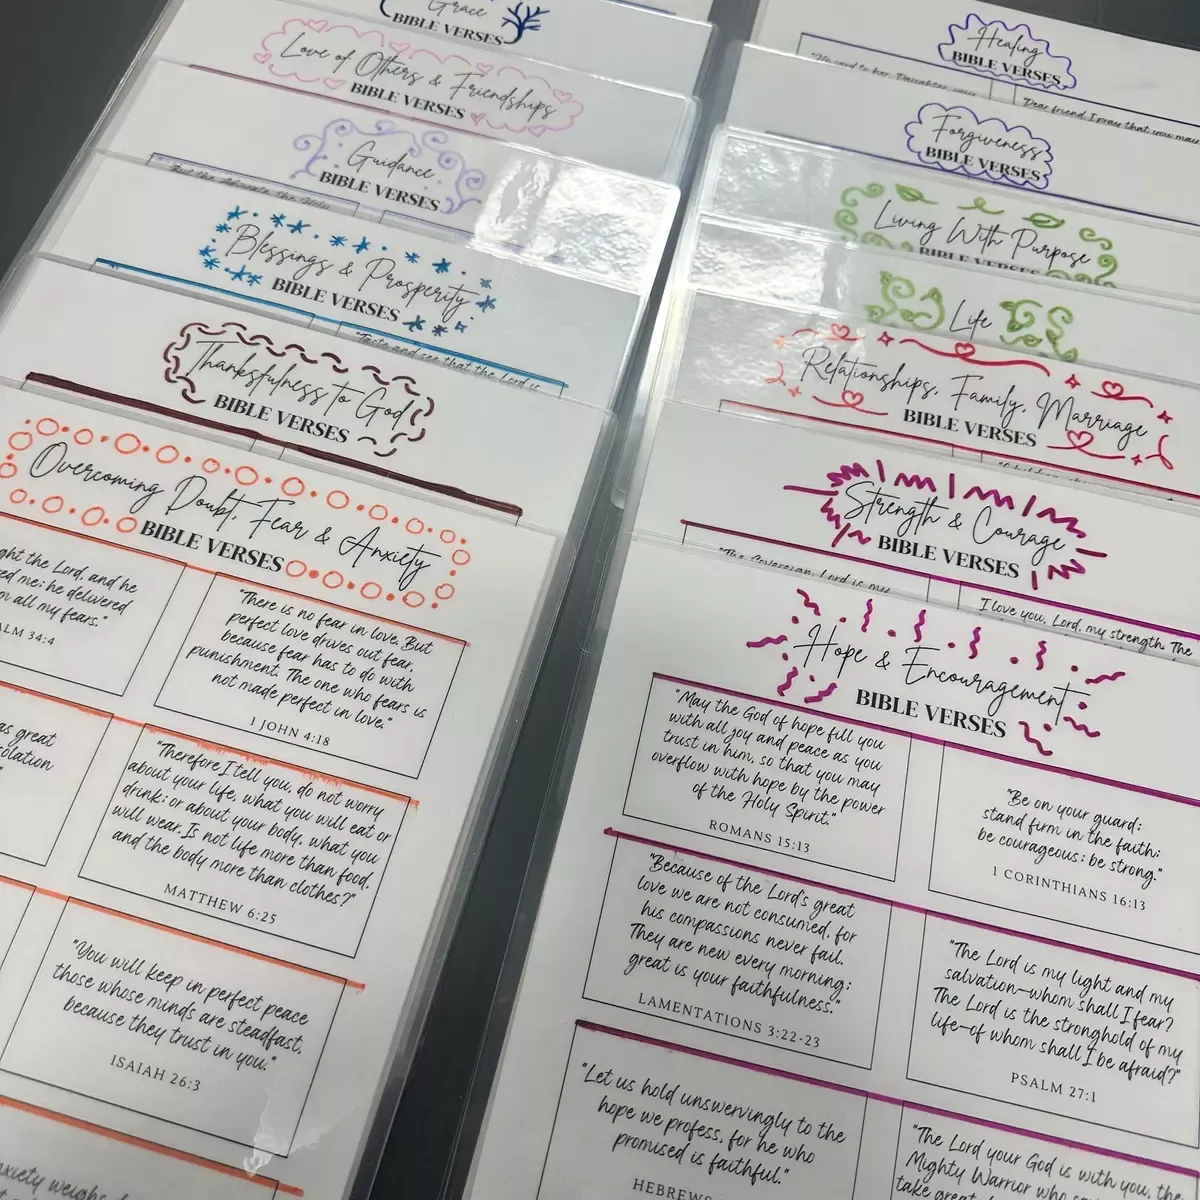 Grace
BIBLE VERSES
Love of Others & Friendships
BIBLE VERSES
Guidance
BIBLE VERSES
"But the Advocate, the Holy
Blessings & Prosperity
BIBLE VERSES
"Taste and see that the Lord is
Thanksfulness to God
BIBLE VERSES
Overcoming Doubt, Fear & Anxiety
BIBLE VERSES
ght the Lord, and he
ed me; he delivered
m all my fears."
ALM 34:4
"There is no fear in love. But
perfect love drives out fear,
because fear has to do with
punishment. The one who fears is
not made perfect in love."
1 JOHN 4:18
as great
solation
"Therefore I tell you, do not worry
about your life, what you will eat or
drink; or about your body, what you
will wear. Is not life more than food,
and the body more than clothes?"
MATTHEW 6:25
"You will keep in perfect peace
those whose minds are steadfast,
because they trust in you."
ISAIAH 26:3
nxiety weighs d
Healing
BIBLE VERSES
"He said to her, Daughter, your
"Dear friend, I pray that you may
Forgiveness
BIBLE VERSES
Living With Purpose
BIBLE VERSES
Life
Relationships, Family, Marriage
BIBLE VERSES
Strength & Courage
BIBLE VERSES
"The Sovereign Lord is my
I love you, Lord, my strength. The
Hope & Encouragement
BIBLE VERSES
"May the God of hope fill you
with all joy and peace as you
trust in him, so that you may
overflow with hope by the power
of the Holy Spirit."
ROMANS 15:13
"Be on your guard;
stand firm in the faith;
be courageous; be strong."
1 CORINTHIANS 16:13
"Because of the Lord's great
love we are not consumed, for
his compassions never fail.
They are new every morning;
great is your faithfulness."
LAMENTATIONS 3:22-23
"The Lord is my light and my
salvation—whom shall I fear?
The Lord is the stronghold of my
life—of whom shall I be afraid?"
PSALM 27:1
"Let us hold unswervingly to the
hope we profess, for he who
promised is faithful."
HEBREWS
"The Lord your God is with you, the
Mighty Warrior who sa
take great